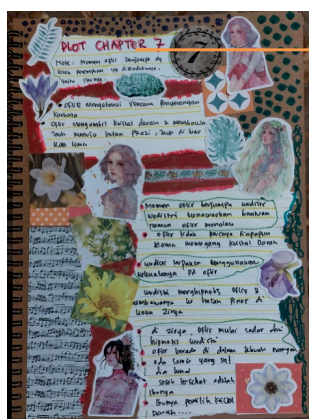 PLOT CHAPTER 7
7
Note : Momen ofir berjumpa dg
sosok perempuan yg
yaitu
• OFIR mengalami rencana penyerangan
Karhara
• OFIR mengambil kristal darah & membawa
Jauh menuju hutan Jauh di luar
kota
• Momen ofir berjumpa wudistri
wudistri menawarkan bantuan
namun ofir menolak
• ofir tidak percaya siapapun
karena memegang kristal Darah
• wudistri terpaksa menggunakan
kekuatannya pd ofir
• wudistri menghipnotis ofir &
membawanya ke hutan Pinor di
kota Zirya
• di Zirya, ofir mulai sadar dari
hipnotis wudistri
• ofir berada di dalam sebuah ruangan
• ada sosok yang
dia kenal
• sosok tersebut adalah
Ibunya
• Ibunya pemilik kristal
Darah ....